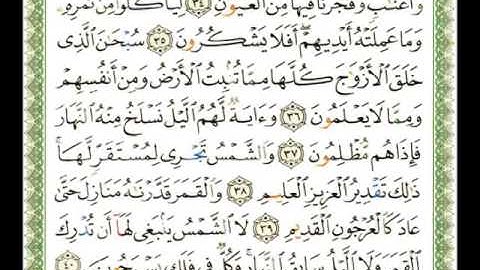 وَأَعْنَٰبٍ وَفَجَّرْنَا فِيهَا مِنَ ٱلْعُيُونِ ٣٤ لِيَأْكُلُوا۟ مِن ثَمَرِهِۦ
وَمَا عَمِلَتْهُ أَيْدِيهِمْ أَفَلَا يَشْكُرُونَ ٣٥ سُبْحَٰنَ ٱلَّذِى
خَلَقَ ٱلْأَزْوَٰجَ كُلَّهَا مِمَّا تُنۢبِتُ ٱلْأَرْضُ وَمِنْ أَنفُسِهِمْ
وَمِمَّا لَا يَعْلَمُونَ ٣٦ وَءَايَةٌ لَّهُمُ ٱلَّيْلُ نَسْلَخُ مِنْهُ ٱلنَّهَارَ
فَإِذَا هُم مُّظْلِمُونَ ٣٧ وَٱلشَّمْسُ تَجْرِى لِمُسْتَقَرٍّ لَّهَا
ذَٰلِكَ تَقْدِيرُ ٱلْعَزِيزِ ٱلْعَلِيمِ ٣٨ وَٱلْقَمَرَ قَدَّرْنَٰهُ مَنَازِلَ حَتَّىٰ
عَادَ كَٱلْعُرْجُونِ ٱلْقَدِيمِ ٣٩ لَا ٱلشَّمْسُ يَنۢبَغِى لَهَآ أَن تُدْرِكَ
ٱلْقَمَرَ وَلَا ٱلَّيْلُ سَابِقُ ٱلنَّهَارِ وَكُلٌّ فِى فَلَكٍ يَسْبَحُونَ ٤٠